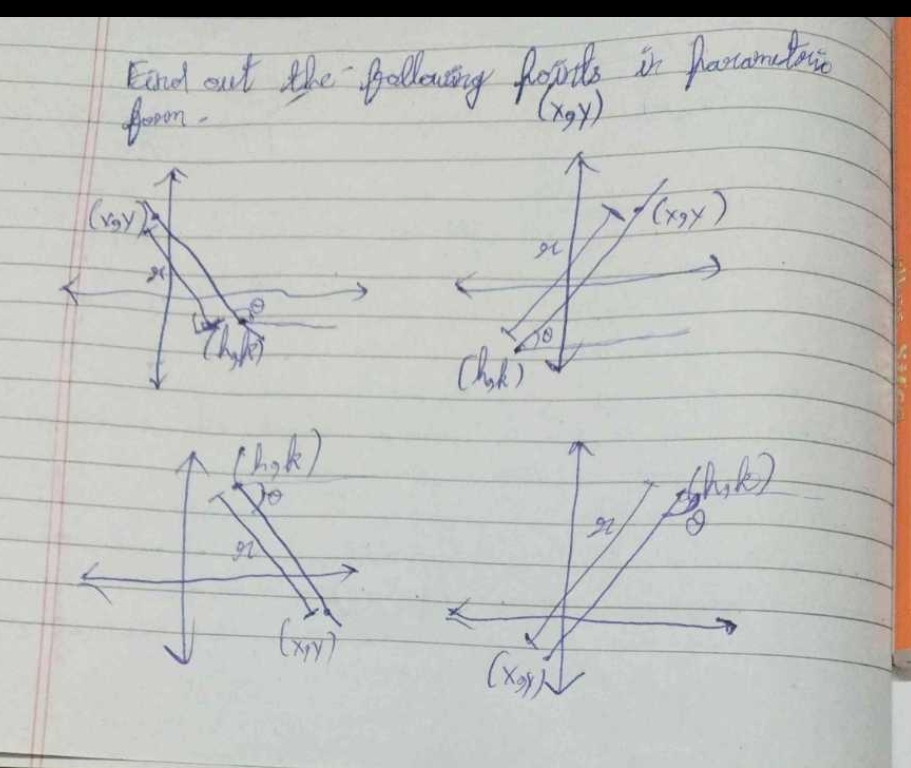 Find out the following points in parametric
form. (x,y)
(x,y)
r
θ
(h,k)
(x,y)
r
θ
(h,k)
(h,k)
θ
r
(x,y)
(h,k)
r
θ
(x,y)